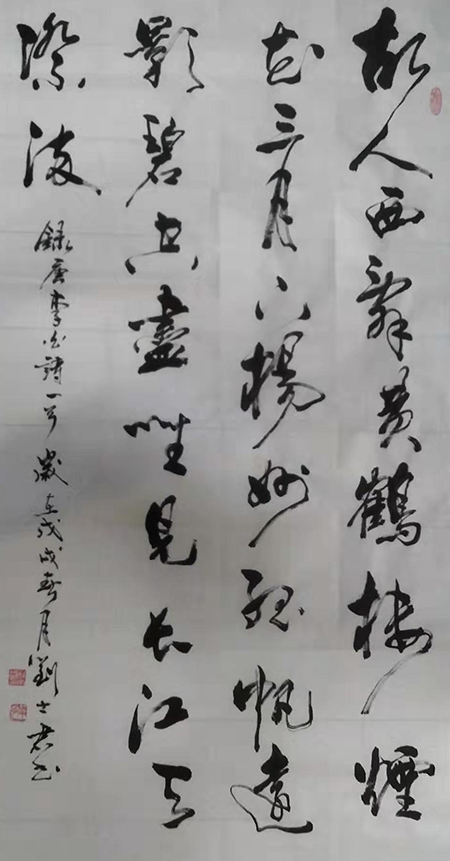 故人西辭黃鶴樓煙
花三月下楊州孤帆遠
影碧空盡唯見長江天
際流
錄唐李白詩一首 歲在戊戌春月劉士君书